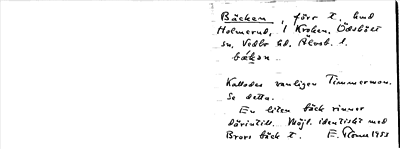 Bäcken, förr t. und
Holmerud, 1 Kroken, Ödsköls
sn, Vedbo hd, Älvsb. l.
bäkan
Kallades vanligen Timmerman.
Se detta.
En liten bäck rinner
därintill. Möjl. identiskt med
Brors bäck t. E. 1953